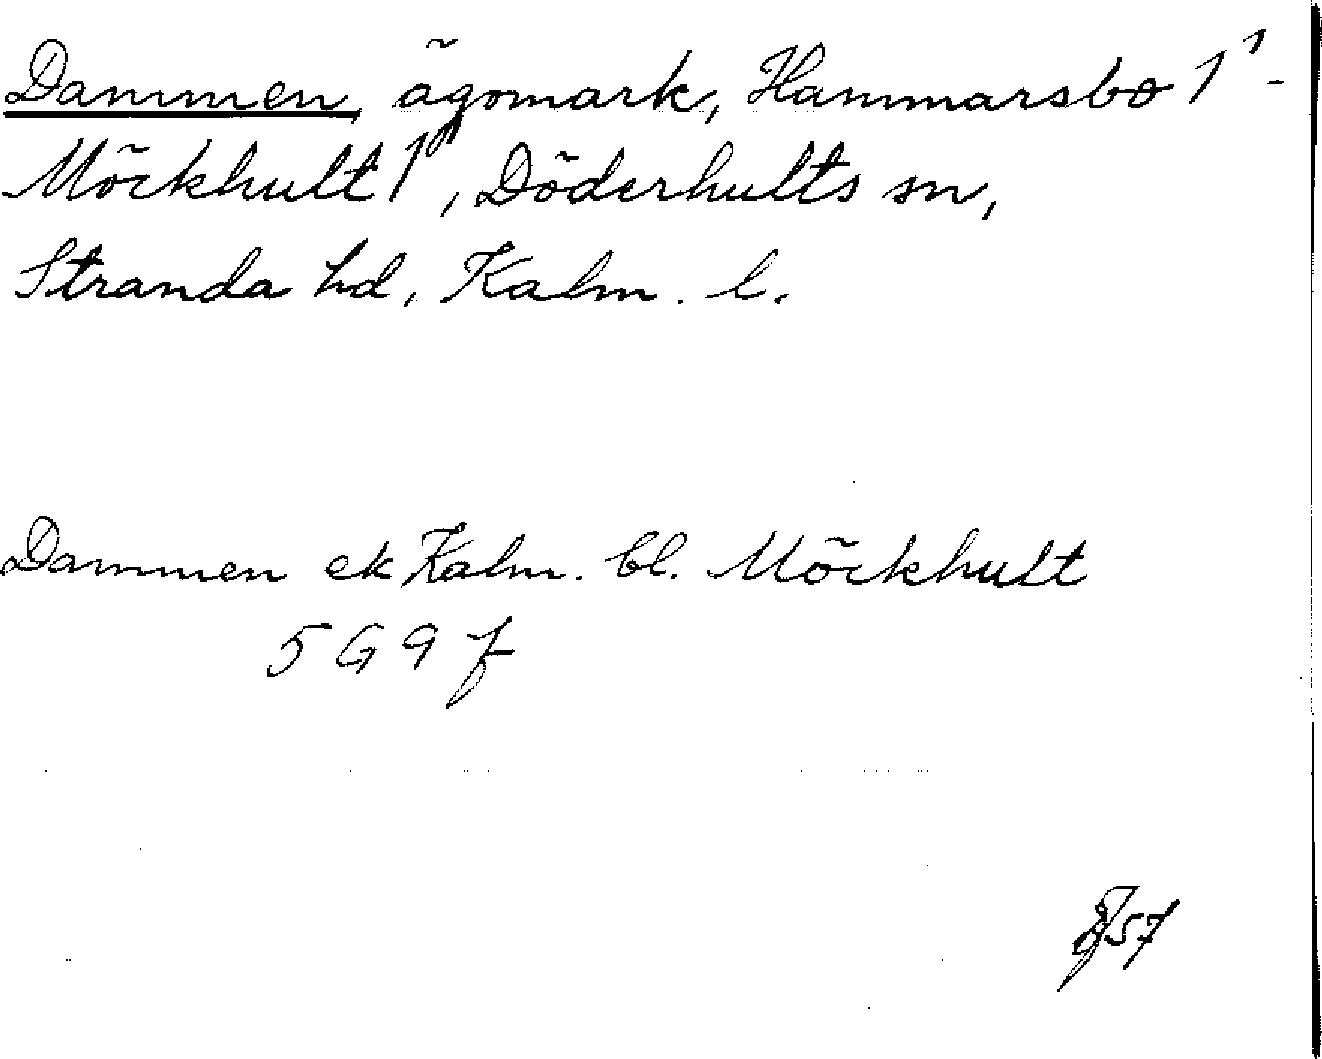 Dammen, ägomark, Hammarsbo 1¹-
Möckhult 1⁴, Döderhults sn,
Stranda hd, Kalm. l.
Dammen ek Kalm. bl. Möckhult
5 G 9 f
57